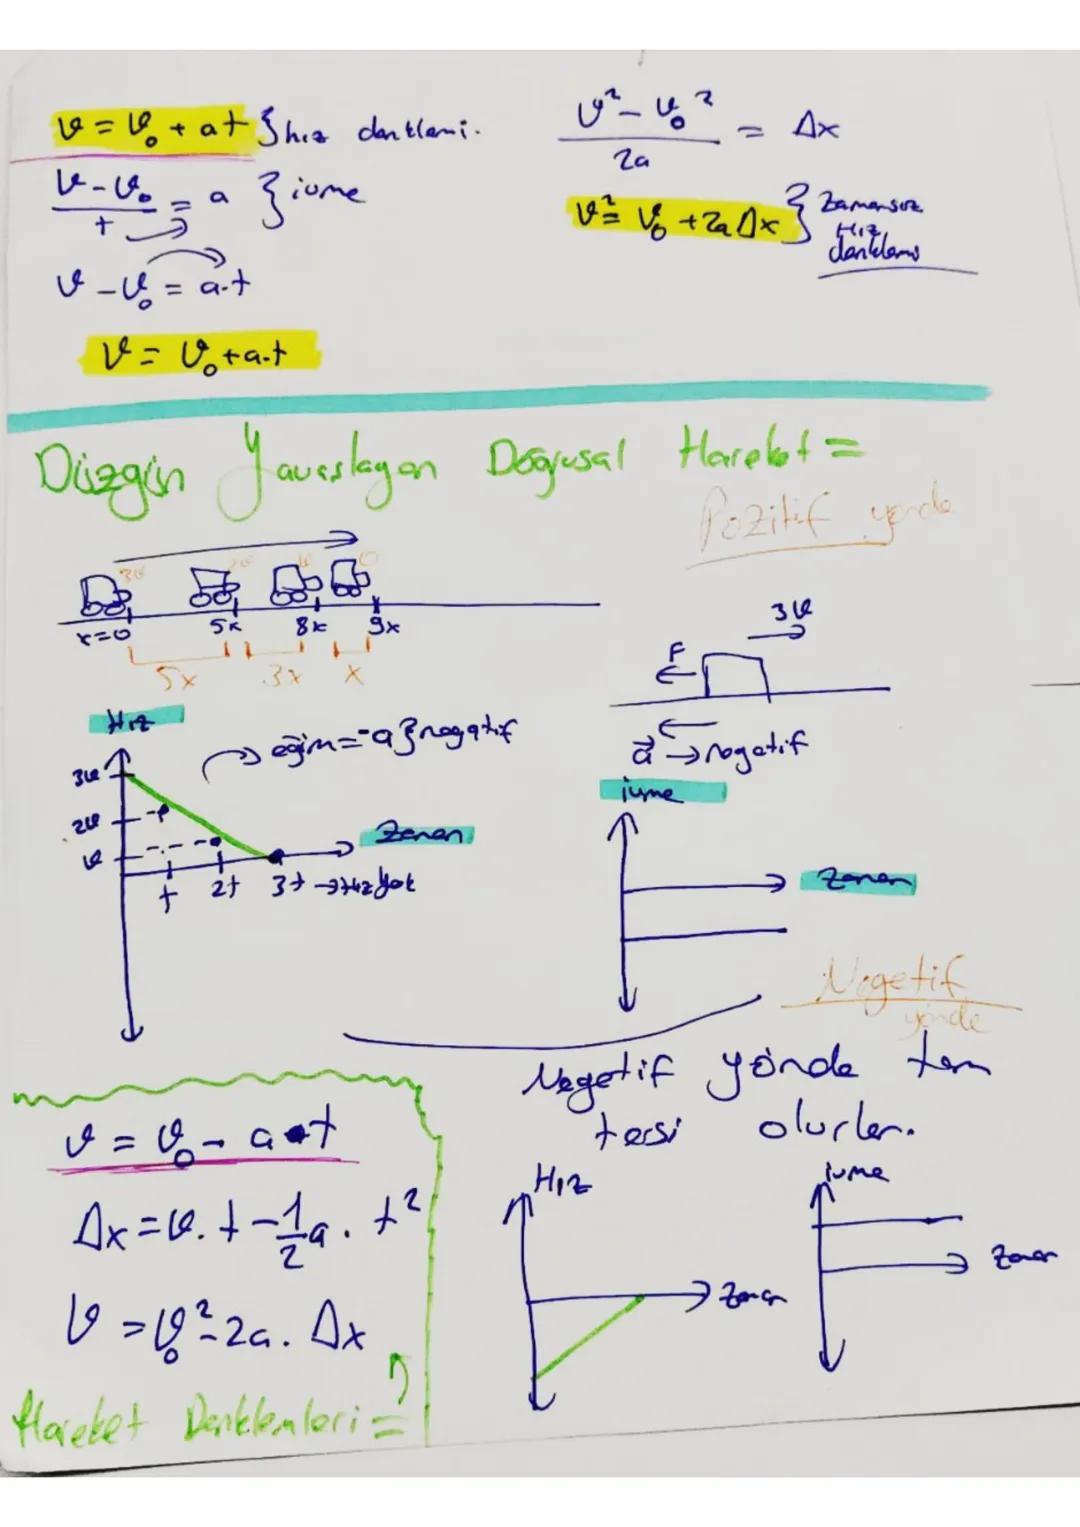 v = v₀ + at } hız denklemi.
v - v₀ / t = a } ivme
v - v₀ = a.t
v = v₀ + a.t
v² - v₀² / 2a = Δx
v² = v₀² + 2aΔx } Zamansız
Hız
denklemi
Düzgün Yavaşlayan Doğrusal Hareket =
Pozitif yönde
3v 2v v 0
x=0 5x 8x 9x
5x 3x x
3v
F
a → negatif
Hız
eğim = -a } negatif
3v
2v
v
Zaman
t 2t 3t → Hız yok
ivme
Zaman
Negetif
yönde
Negetif yönde tam
tersi olurlar.
v = v₀ - a•t
Δx = v.t - 1/2 a.t²
v = v₀² - 2a.Δx
Hareket Denklemleri =
Hız
Zaman
ivme
Zaman